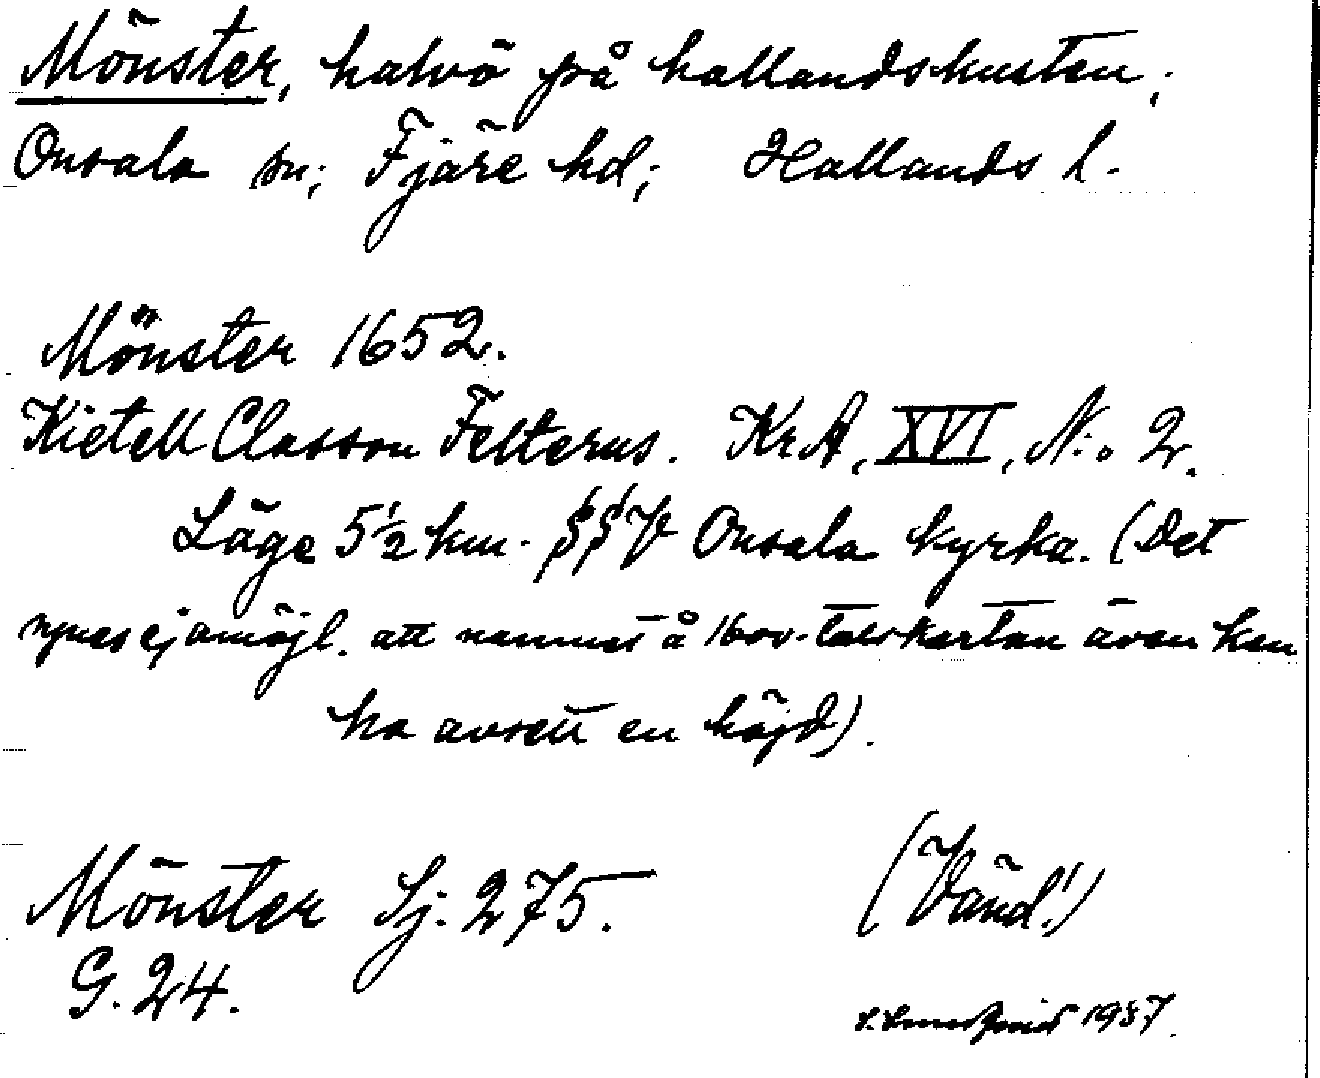 Mönster, halvö på hallandskusten;
Onsala sn; Fjäre hd; Hallands l.
Mönster 1652.
Kietell Classon Felterus. KrA, XVI, N:o 2.
Läge 5½ km. SSV Onsala kyrka. (Det
synes ej omöjl. att namnet å 1600-talskartan även kan
ha avsett en höjd).
Mönster Sj. 275.
(Vänd!)
G. 24.
1937